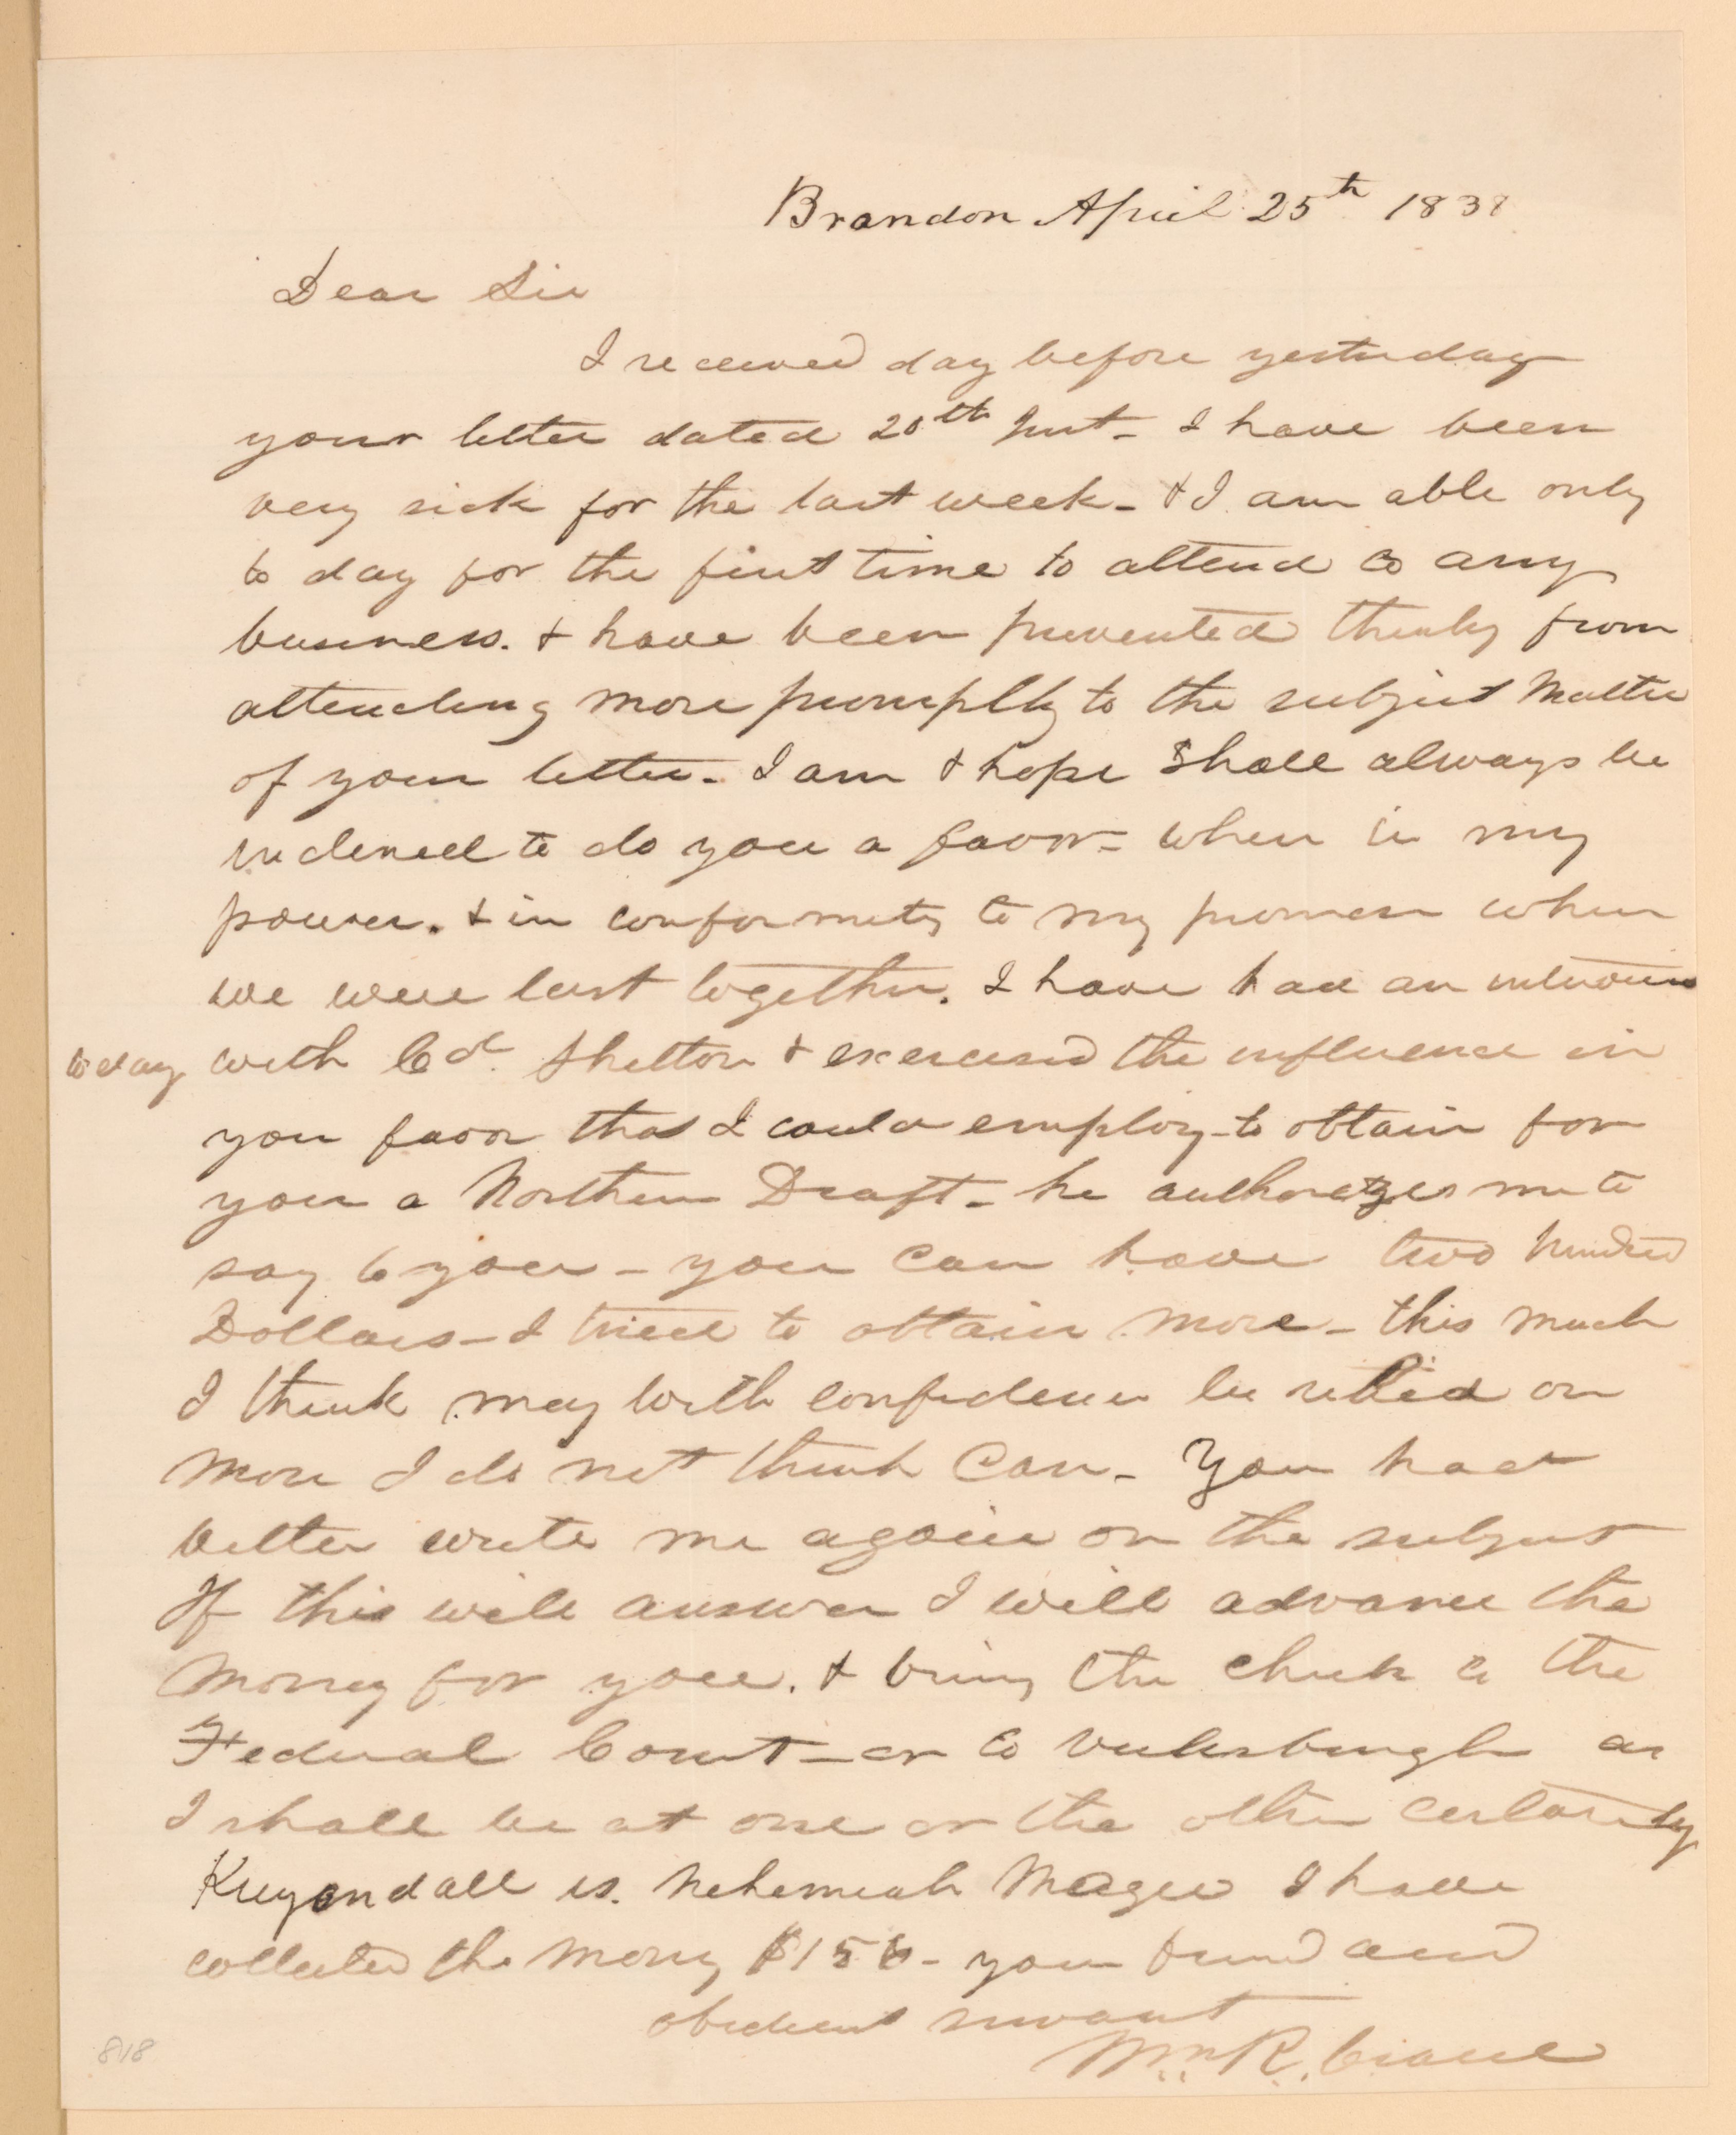 Brandon April 25th 1838
Dear Sir
I received day before yesterday
your letter dated 20th Inst - I have been
very sick for the last week - & I am able only
to day for the first time to attend to any
business. & have been prevented thereby from
attending more promptly to the subject matter
of your letter - I am & hope shall always be
inclined to do you a favor - when in my
power. & in conformity to my promise when
we were last together. I have had an interview
to day with Col. Shelton & exercised the influence in
you favor that I could employ - to obtain for
you a Northern Draft - he authorizes me to
say to you - you can have two hundred
Dollars - I tried to obtain more - this much
I think may with confidence be relied on
more I do not think can - You had
better write me again on the subject
If this will answer I will advance the
money for you. & bring the check to the
Federal Court - or to Vicksburgh as
I shall be at one or the other certainly
Kuyendall vs. Nehemiah Magee I have
collected the money - your friend and
obedient servant
Wm R.
818